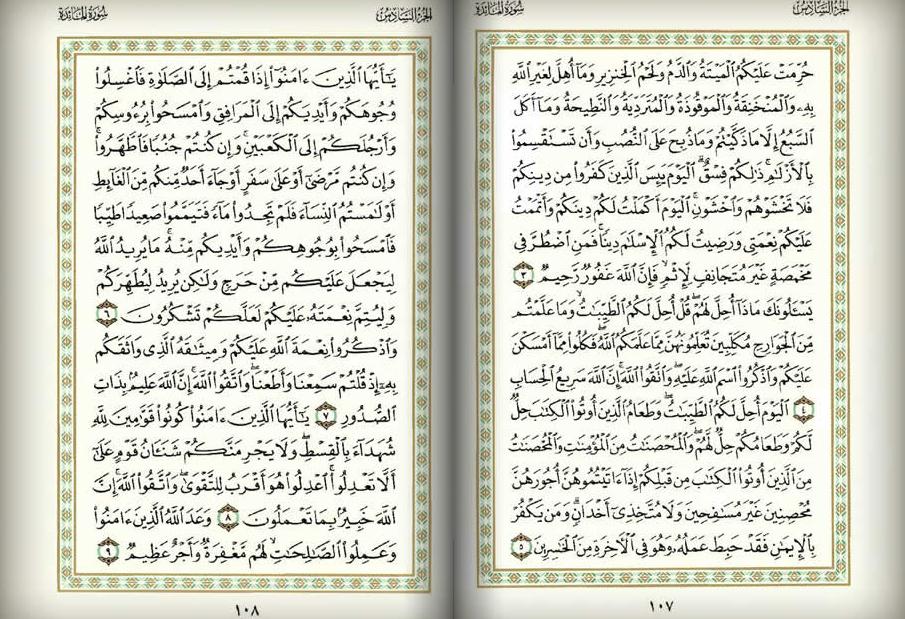 الجزء السادس
سورة المائدة
حُرِّمَتْ عَلَيْكُمُ ٱلْمَيْتَةُ وَٱلدَّمُ وَلَحْمُ ٱلْخِنزِيرِ وَمَآ أُهِلَّ لِغَيْرِ ٱللَّهِ
بِهِۦ وَٱلْمُنْخَنِقَةُ وَٱلْمَوْقُوذَةُ وَٱلْمُتَرَدِّيَةُ وَٱلنَّطِيحَةُ وَمَآ أَكَلَ
ٱلسَّبُعُ إِلَّا مَا ذَكَّيْتُمْ وَمَا ذُبِحَ عَلَى ٱلنُّصُبِ وَأَن تَسْتَقْسِمُوا۟
بِٱلْأَزْلَٰمِ ۚ ذَٰلِكُمْ فِسْقٌ ۗ ٱلْيَوْمَ يَئِسَ ٱلَّذِينَ كَفَرُوا۟ مِن دِينِكُمْ
فَلَا تَخْشَوْهُمْ وَٱخْشَوْنِ ۚ ٱلْيَوْمَ أَكْمَلْتُ لَكُمْ دِينَكُمْ وَأَتْمَمْتُ
عَلَيْكُمْ نِعْمَتِى وَرَضِيتُ لَكُمُ ٱلْإِسْلَٰمَ دِينًا ۚ فَمَنِ ٱضْطُرَّ فِى
مَخْمَصَةٍ غَيْرَ مُتَجَانِفٍ لِّإِثْمٍ ۙ فَإِنَّ ٱللَّهَ غَفُورٌ رَّحِيمٌ ٣
يَسْـَٔلُونَكَ مَاذَآ أُحِلَّ لَهُمْ ۖ قُلْ أُحِلَّ لَكُمُ ٱلطَّيِّبَٰتُ ۙ وَمَا عَلَّمْتُم
مِّنَ ٱلْجَوَارِحِ مُكَلِّبِينَ تُعَلِّمُونَهُنَّ مِمَّا عَلَّمَكُمُ ٱللَّهُ ۖ فَكُلُوا۟ مِمَّآ أَمْسَكْنَ
عَلَيْكُمْ وَٱذْكُرُوا۟ ٱسْمَ ٱللَّهِ عَلَيْهِ ۖ وَٱتَّقُوا۟ ٱللَّهَ ۚ إِنَّ ٱللَّهَ سَرِيعُ ٱلْحِسَابِ
٤ ٱلْيَوْمَ أُحِلَّ لَكُمُ ٱلطَّيِّبَٰتُ ۖ وَطَعَامُ ٱلَّذِينَ أُوتُوا۟ ٱلْكِتَٰبَ حِلٌّ
لَّكُمْ وَطَعَامُكُمْ حِلٌّ لَّهُمْ ۖ وَٱلْمُحْصَنَٰتُ مِنَ ٱلْمُؤْمِنَٰتِ وَٱلْمُحْصَنَٰتُ
مِنَ ٱلَّذِينَ أُوتُوا۟ ٱلْكِتَٰبَ مِن قَبْلِكُمْ إِذَآ ءَاتَيْتُمُوهُنَّ أُجُورَهُنَّ
مُحْصِنِينَ غَيْرَ مُسَٰفِحِينَ وَلَا مُتَّخِذِىٓ أَخْدَانٍ ۗ وَمَن يَكْفُرْ
بِٱلْإِيمَٰنِ فَقَدْ حَبِطَ عَمَلُهُۥ وَهُوَ فِى ٱلْـَٔاخِرَةِ مِنَ ٱلْخَٰسِرِينَ ٥
١٠٧
الجزء السادس
سورة المائدة
يَٰٓأَيُّهَا ٱلَّذِينَ ءَامَنُوٓا۟ إِذَا قُمْتُمْ إِلَى ٱلصَّلَوٰةِ فَٱغْسِلُوا۟
وُجُوهَكُمْ وَأَيْدِيَكُمْ إِلَى ٱلْمَرَافِقِ وَٱمْسَحُوا۟ بِرُءُوسِكُمْ
وَأَرْجُلَكُمْ إِلَى ٱلْكَعْبَيْنِ ۚ وَإِن كُنتُمْ جُنُبًا فَٱطَّهَّرُوا۟ ۚ
وَإِن كُنتُم مَّرْضَىٰٓ أَوْ عَلَىٰ سَفَرٍ أَوْ جَآءَ أَحَدٌ مِّنكُم مِّنَ ٱلْغَآئِطِ
أَوْ لَٰمَسْتُمُ ٱلنِّسَآءَ فَلَمْ تَجِدُوا۟ مَآءً فَتَيَمَّمُوا۟ صَعِيدًا طَيِّبًا
فَٱمْسَحُوا۟ بِوُجُوهِكُمْ وَأَيْدِيكُم مِّنْهُ ۚ مَا يُرِيدُ ٱللَّهُ
لِيَجْعَلَ عَلَيْكُم مِّنْ حَرَجٍ وَلَٰكِن يُرِيدُ لِيُطَهِّرَكُمْ
وَلِيُتِمَّ نِعْمَتَهُۥ عَلَيْكُمْ لَعَلَّكُمْ تَشْكُرُونَ ٦
وَٱذْكُرُوا۟ نِعْمَةَ ٱللَّهِ عَلَيْكُمْ وَمِيثَٰقَهُ ٱلَّذِى وَاثَقَكُم
بِهِۦٓ إِذْ قُلْتُمْ سَمِعْنَا وَأَطَعْنَا ۖ وَٱتَّقُوا۟ ٱللَّهَ ۚ إِنَّ ٱللَّهَ عَلِيمٌۢ بِذَاتِ
ٱلصُّدُورِ ٧ يَٰٓأَيُّهَا ٱلَّذِينَ ءَامَنُوا۟ كُونُوا۟ قَوَّٰمِينَ لِلَّهِ
شُهَدَآءَ بِٱلْقِسْطِ ۖ وَلَا يَجْرِمَنَّكُمْ شَنَـَٔانُ قَوْمٍ عَلَىٰٓ
أَلَّا تَعْدِلُوا۟ ۚ ٱعْدِلُوا۟ هُوَ أَقْرَبُ لِلتَّقْوَىٰ ۖ وَٱتَّقُوا۟ ٱللَّهَ ۚ إِنَّ
ٱللَّهَ خَبِيرٌۢ بِمَا تَعْمَلُونَ ٨ وَعَدَ ٱللَّهُ ٱلَّذِينَ ءَامَنُوا۟
وَعَمِلُوا۟ ٱلصَّٰلِحَٰتِ ۙ لَهُم مَّغْفِرَةٌ وَأَجْرٌ عَظِيمٌ ٩
١٠٨